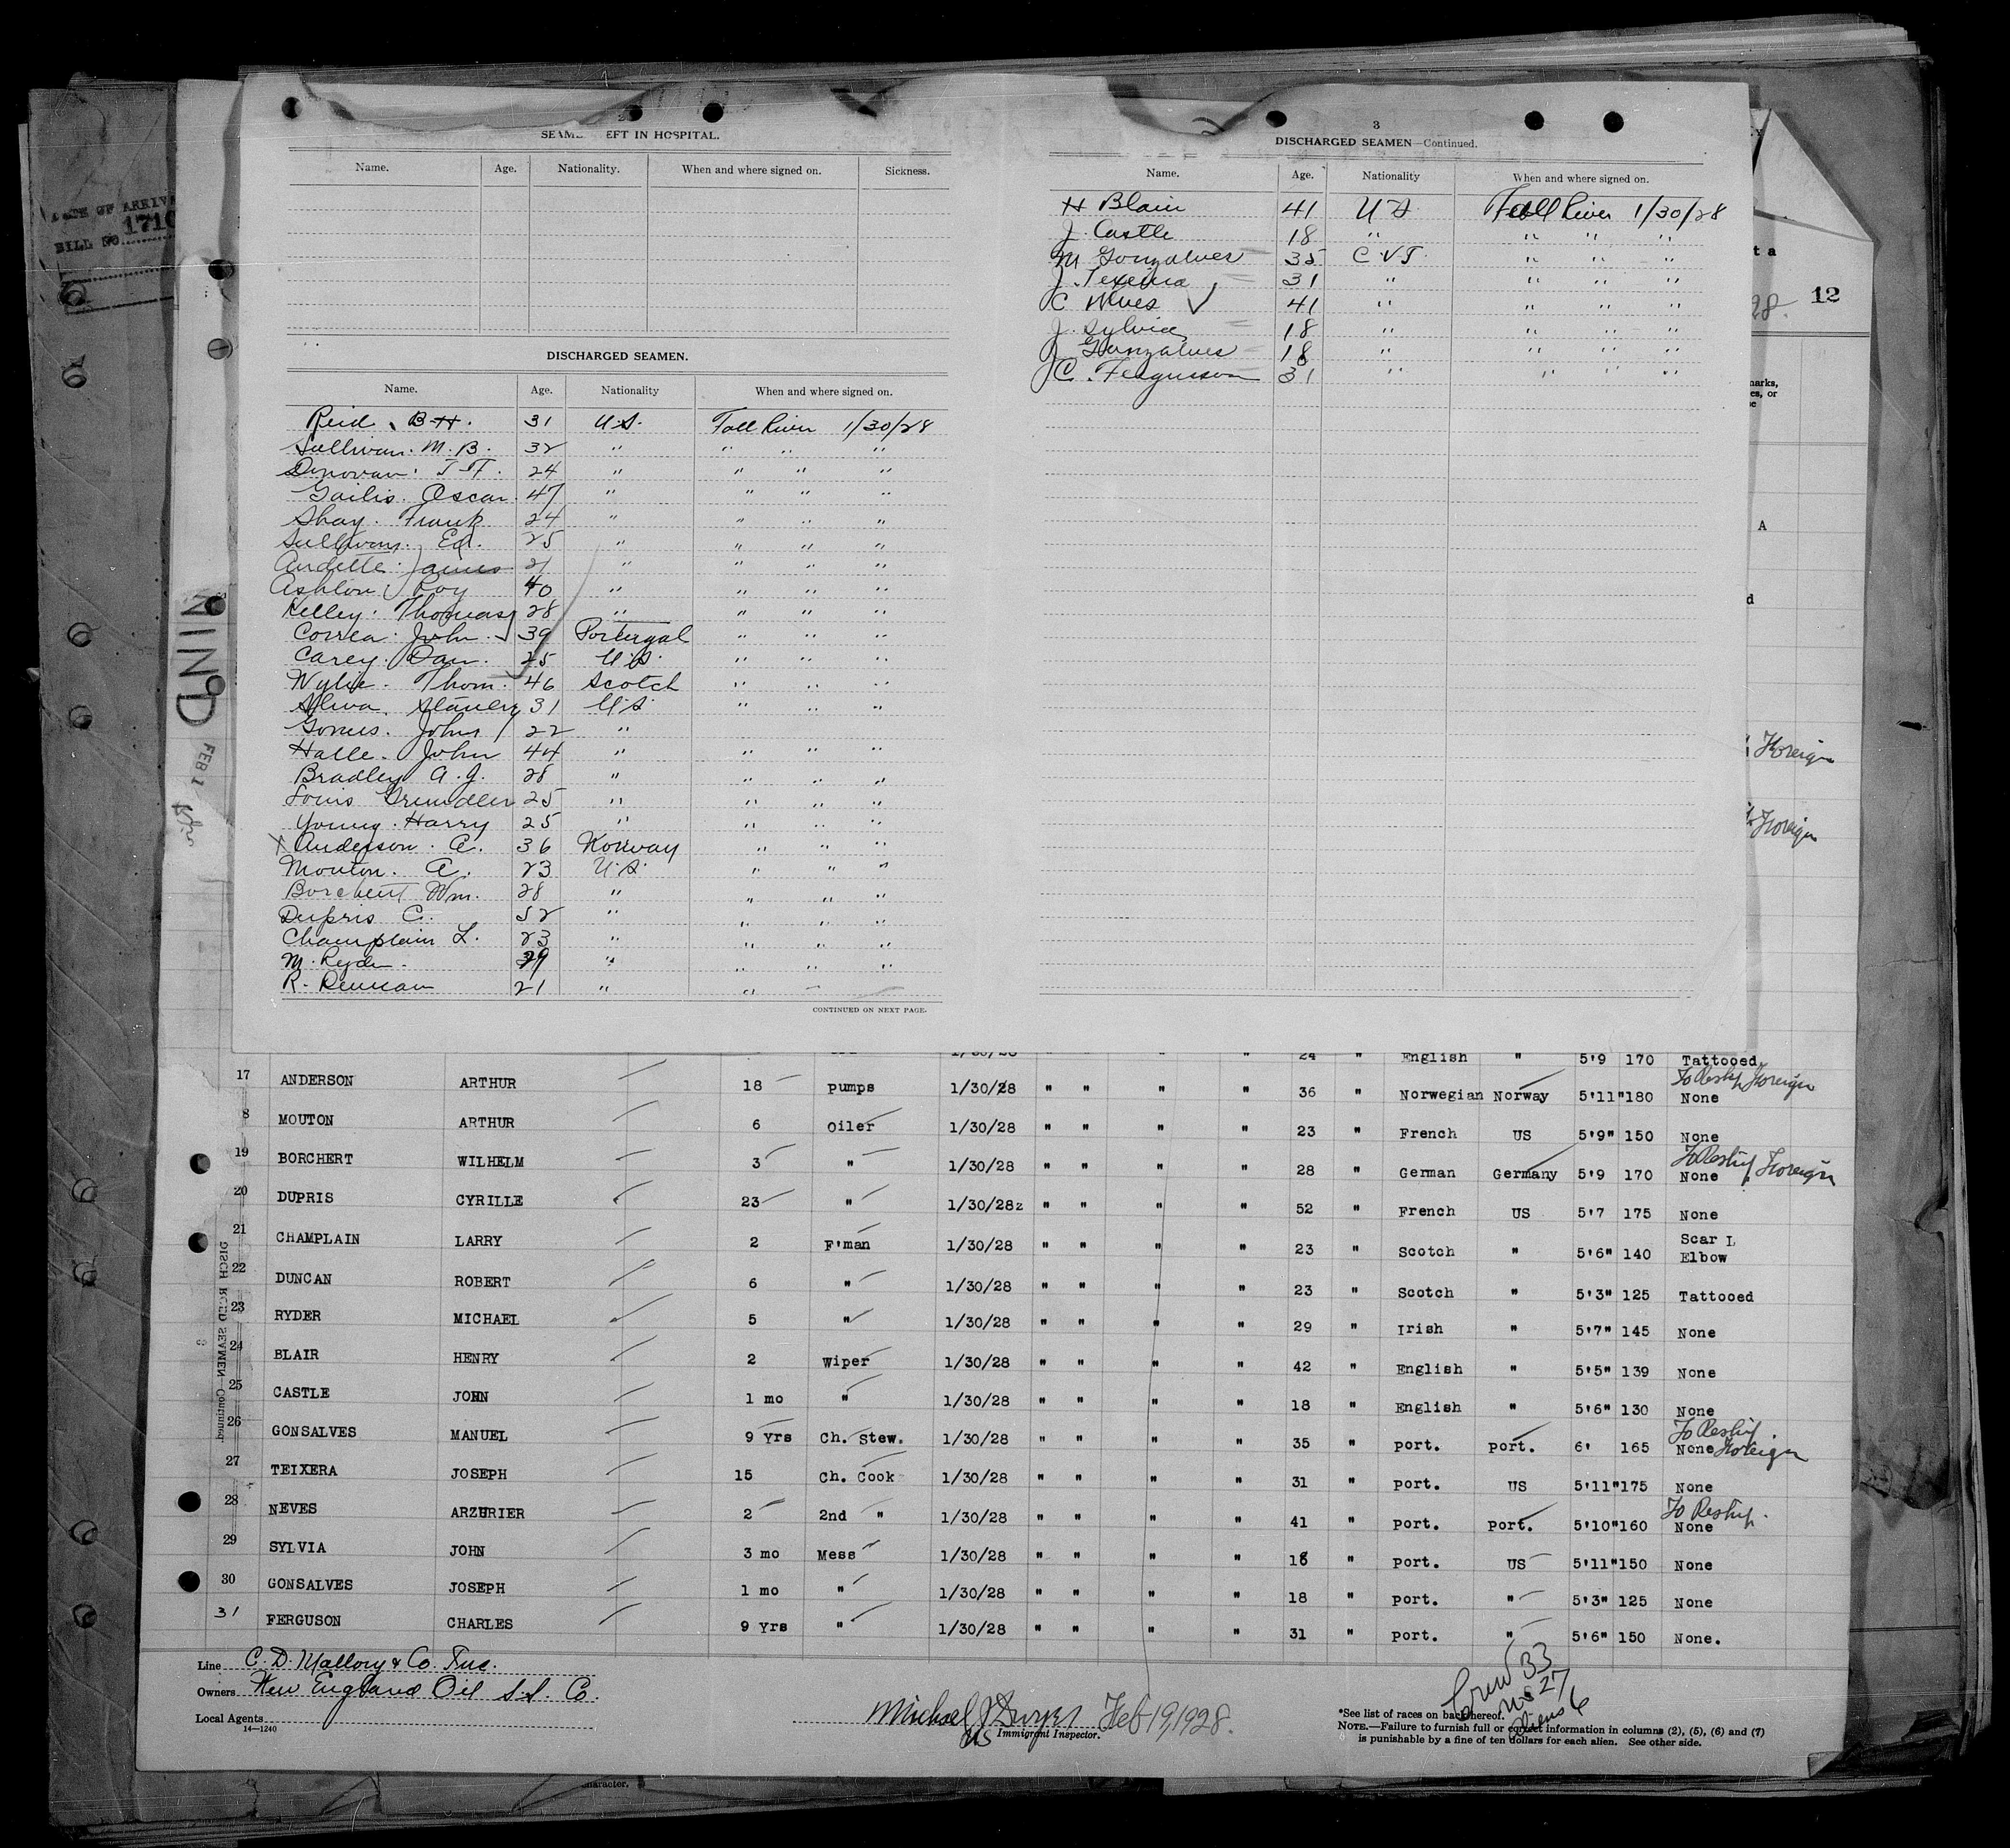 DATE OF ARRIVA
BILL NO. 1710
2
SEAME EFT IN HOSPITAL.
Name. Age. Nationality. When and where signed on. Sickness.
DISCHARGED SEAMEN.
Name. Age. Nationality When and where signed on.
Reid, B H. 31 U.S. Fall River 1/30/28
Sullivan. M. B. 32 " " " "
Donovan. J F. 24 " " " "
Gailis. Oscar. 47 " " " "
Shay. Frank 24 " " " "
Sullivan. Ed. 25 " " " "
Audette. James 21 " " " "
Ashton. Roy 40 " " " "
Kelley. Thomas 28 " " " "
Correa. John. 39 Portugal " " "
Carey. Dan. 25 U.S. " " "
Wylie. Thom. 46 Scotch " " "
Sylvia. Stanley 31 U.S. " " "
Gomes. John 22 " " " "
Halle. John 44 " " " "
Bradley A. J. 28 " " " "
Louis Grundler 25 " " " "
Young. Harry 25 " " " "
x Anderson. A. 36 Norway " " "
Mouton. A. 23 U.S. " " "
Borchert Wm. 28 " " " "
Dupris C. 52 " " " "
Champlain L. 23 " " " "
M. Ryder. 29 " " " "
R. Denman 21 " "
CONTINUED ON NEXT PAGE.
3
DISCHARGED SEAMEN—Continued.
Name. Age. Nationality When and where signed on.
H Blair 41 U S Fall River 1/30/28
J. Castle 18 " " " "
M Gonzalves 35 C.V.I. " " "
J. Texeira 31 " " " "
C Neves 41 " " " "
J. Sylvia 18 " " " "
J Gonzalves 18 " " " "
C. Fergusson 31 " " " "
t a
28. 12
marks,
es, or
A
d
Foreign
Foreign
NIND
FEB 1
1/30/28 " " " " 24 " English " 5'9 170 Tattooed
17 ANDERSON ARTHUR 18 pumps 1/30/28 " " " " 36 " Norwegian Norway 5'11" 180 To Reship Foreign None
8 MOUTON ARTHUR 6 Oiler 1/30/28 " " " " 23 " French US 5'9" 150 None
19 BORCHERT WILHELM 3 " 1/30/28 " " " " 28 " German Germany 5'9 170 To Reship Foreign None
20 DUPRIS CYRILLE 23 " 1/30/28z " " " " 52 " French US 5'7 175 None
21 CHAMPLAIN LARRY 2 F'man 1/30/28 " " " " 23 " Scotch " 5'6" 140 Scar L Elbow
22 DUNCAN ROBERT 6 " 1/30/28 " " " " 23 " Scotch " 5'3" 125 Tattooed
23 RYDER MICHAEL 5 " 1/30/28 " " " " 29 " Irish " 5'7" 145 None
24 BLAIR HENRY 2 Wiper 1/30/28 " " " " 42 " English " 5'5" 139 None
25 CASTLE JOHN 1 mo " 1/30/28 " " " " 18 " English " 5'6" 130 None
26 GONSALVES MANUEL 9 Yrs Ch. Stew. 1/30/28 " " " " 35 " port. port. 6' 165 To Reship None Foreign
27 TEIXERA JOSEPH 15 Ch. Cook 1/30/28 " " " " 31 " port. US 5'11" 175 None
28 NEVES ARZURIER 2 2nd " 1/30/28 " " " " 41 " port. port. 5'10" 160 To Reship. None
29 SYLVIA JOHN 3 mo Mess 1/30/28 " " " " 18 " port. US 5'11" 150 None
30 GONSALVES JOSEPH 1 mo " 1/30/28 " " " " 18 " port. " 5'3" 125 None
31 FERGUSON CHARLES 9 Yrs " 1/30/28 " " " " 31 " port. " 5'6" 150 None.
DISCHARGED SEAMEN—Continued.
3
Line C. D. Mallory & Co. Inc.
Owners New England Oil S.S. Co.
Local Agents
14—1240
Michael J Dwyer Feb 19, 1928.
US Immigrant Inspector.
Crew 33
US 27
Aliens 6
*See list of races on back hereof.
NOTE.—Failure to furnish full or correct information in columns (2), (5), (6) and (7)
is punishable by a fine of ten dollars for each alien. See other side.
character.